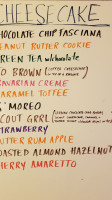 CHEESECAKE
CHOCOLATE CHIP FASCIANA
PEANUT BUTTER COOKIE
GREEN TEA w/chocolate
TO BROWN
BAVARIAN CREME
CARAMEL TOFFEE
S'MOREO
SCOUT GRRL
STRAWBERRY
BUTTER RUM APPLE
ROASTED ALMOND HAZELNUT
CHERRY AMARETTO